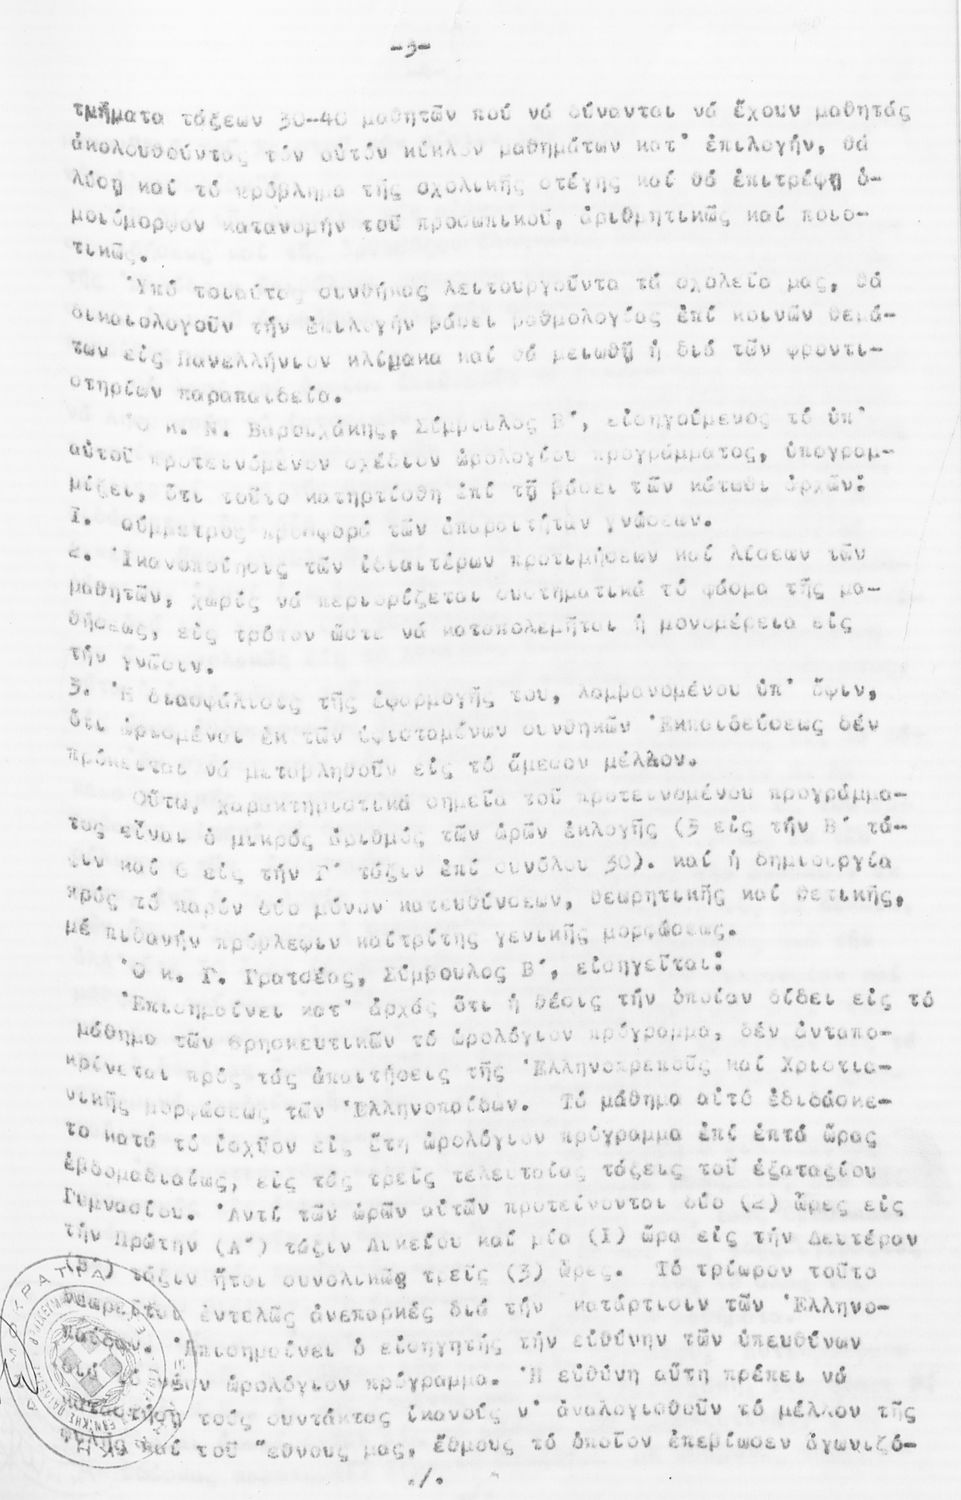 -5-
τμήματα τάξεων 30-40 μαθητῶν πού νά δύνανται νά ἔχουν μαθητάς
ἀκολουθοῦντας τόν αὐτόν κύκλον μαθημάτων κατ' ἐπιλογήν, θά
λύσῃ καί τό πρόβλημα τῆς σχολικῆς στέγης καί θά ἐπιτρέψῃ ὁ-
μοιόμορφον κατανομήν τοῦ προσωπικοῦ, ἀριθμητικῶς καί ποιο-
τικῶς.
Ὑπό τοιαύτας συνθήκας λειτουργοῦντα τά σχολεῖα μας, θά
δικαιολογοῦν τήν ἐπιλογήν βάσει βαθμολογίας ἐπί κοινῶν θεμά-
των εἰς Πανελλήνιον κλίμακα καί θά μειωθῇ ἡ διά τῶν φροντι-
στηρίων παραπαιδεία.
Ὁ κ. Ν. Βαρουχάκης, Σύμβουλος Β', εἰσηγούμενος τό ὑπ'
αὐτοῦ προτεινόμενον σχέδιον ὡρολογίου προγράμματος, ὑπογραμ-
μίζει, ὅτι τοῦτο κατηρτίσθη ἐπί τῇ βάσει τῶν κάτωθι ἀρχῶν:
I. σύμμετρος προσφορά τῶν ἀπαραιτήτων γνώσεων.
2. Ἱκανοποίησις τῶν ἰδιαιτέρων προτιμήσεων καί λίσεων τῶν
μαθητῶν, χωρίς νά περιορίζεται συστηματικά τό φάσμα τῆς μα-
θήσεως, εἰς τρόπον ὥστε νά καταπολεμῆται ἡ μονομέρεια εἰς
τήν γνῶσιν.
3. Ἡ διασφάλισις τῆς ἐφαρμογῆς του, λαμβανομένου ὑπ' ὄψιν,
ὅτι ὡρισμέναι ἐκ τῶν ὑφισταμένων συνθηκῶν Ἐκπαιδεύσεως δέν
πρόκειται νά μεταβληθοῦν εἰς τό ἄμεσον μέλλον.
Οὕτω, χαρακτηριστικά σημεῖα τοῦ προτεινομένου προγράμμα-
τος εἶναι ὁ μικρός ἀριθμός τῶν ὡρῶν ἐκλογῆς (5 εἰς τήν Β' τά-
ξιν καί 6 εἰς τήν Γ' τάξιν ἐπί συνόλου 30). καί ἡ δημιουργία
πρός τό παρόν δύο μόνον κατευθύνσεων, θεωρητικῆς καί θετικῆς,
μέ πιθανήν πρόβλεψιν καίτρίτης γενικῆς μορφώσεως.
Ὁ κ. Γ. Γρατσέας, Σύμβουλος Β', εἰσηγεῖται:
Ἐπισημαίνει κατ' ἀρχάς ὅτι ἡ θέσις τήν ὁποίαν δίδει εἰς τό
μάθημα τῶν θρησκευτικῶν τό ὡρολόγιον πρόγραμμα, δέν ἀνταπο-
κρίνεται πρός τάς ἀπαιτήσεις τῆς Ἑλληνοπρεποῦς καί Χριστια-
νικῆς μορφώσεως τῶν Ἑλληνοπαίδων. Τό μάθημα αὐτό ἐδιδάσκε-
το κατά τό ἰσχῦον εἰς ἔτη ὡρολόγιον πρόγραμμα ἐπί ἑπτά ὥρας
ἑβδομαδιαίως, εἰς τάς τρεῖς τελευταίας τάξεις τοῦ ἑξαταξίου
Γυμνασίου. Ἀντί τῶν ὡρῶν αὐτῶν προτείνονται δύο (2) ὧρες εἰς
τήν Πρώτην (Α') τάξιν Λυκείου καί μία (I) ὥρα εἰς τήν Δευτέραν
(Β') τάξιν ἤτοι συνολικῶς τρεῖς (3) ὧρες. Τό τρίωρον τοῦτο
θεωρεῖται ἐντελῶς ἀνεπαρκές διά τήν κατάρτισιν τῶν Ἑλληνο-
παίδων. Ἐπισημαίνει ὁ εἰσηγητής τήν εὐθύνην τῶν ὑπευθύνων
διά τό νέον ὡρολόγιον πρόγραμμα. Ἡ εὐθύνη αὕτη πρέπει νά
καταστήσῃ τούς συντάκτας ἱκανούς ν' ἀναλογισθοῦν τό μέλλον τῆς
φυλῆς καί τοῦ Ἔθνους μας, ἔθνους τό ὁποῖον ἐπεβίωσεν ἀγωνιζό-
./.